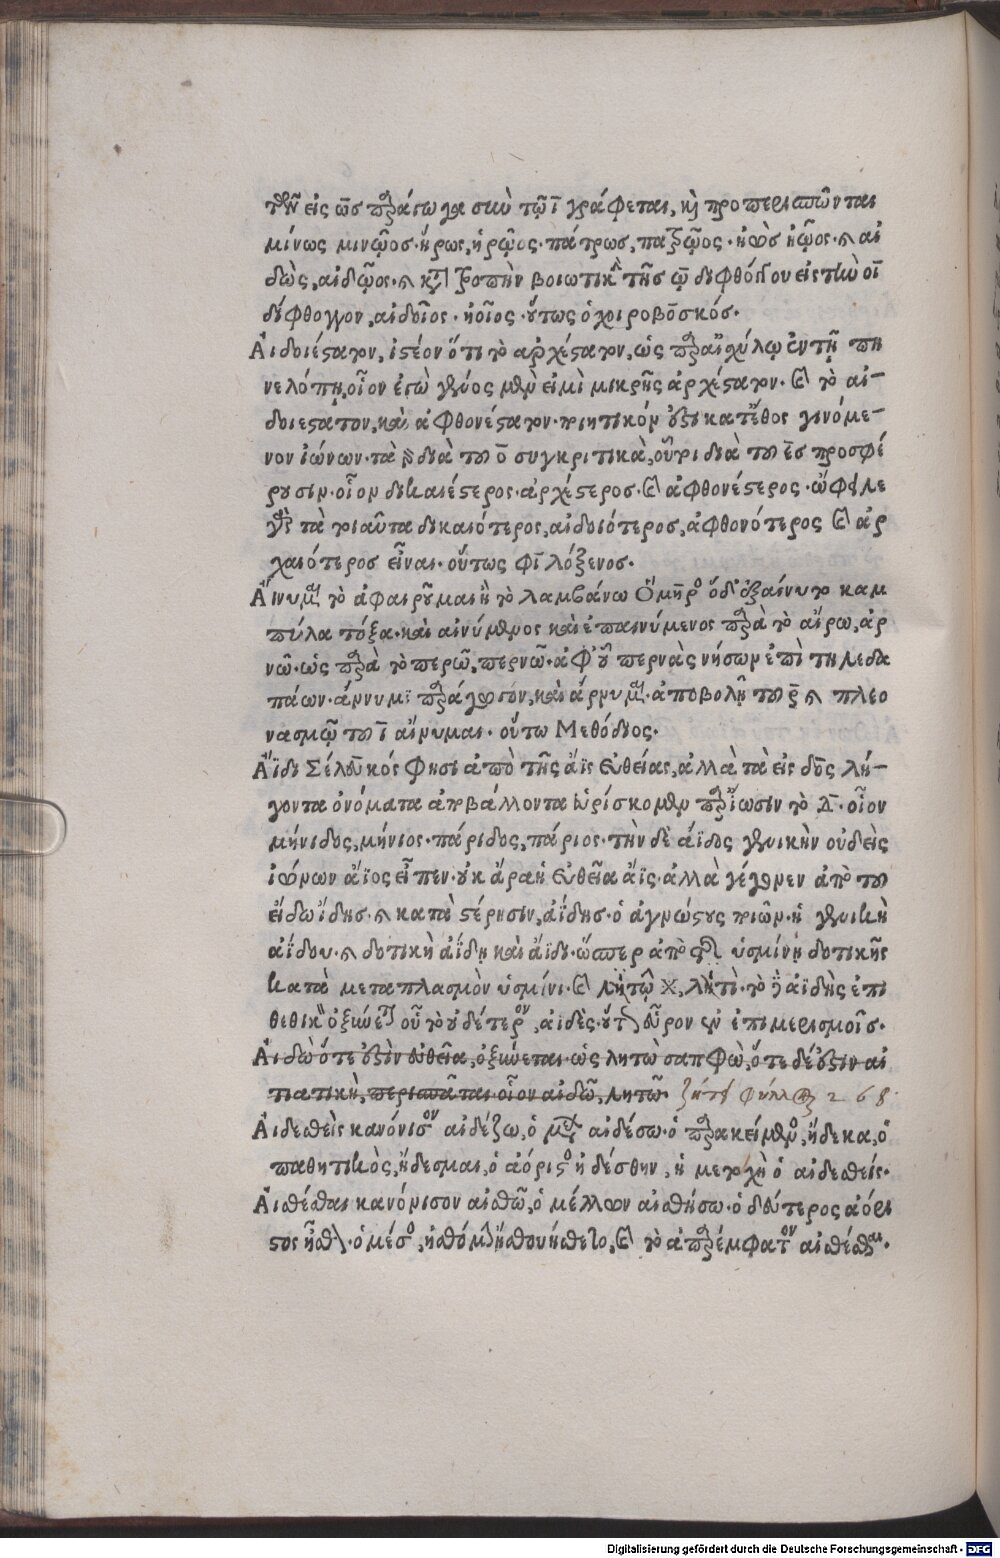 τῶν εἰς ως παράγωγα σὺν τῷ ι γράφεται, καὶ προπερισπῶνται
μίνως μινῷος· ἥρως, ἡρῷος· πάτρως, πατρῷος· ἠὼς ἠῷος· καὶ αἰ
δὼς, αἰδῷος· καὶ κατὰ τροπὴν βοιωτικὴν τῆς ῳ διφθόγγου εἰς τὴν οι
δίφθογγον, αἰδοῖος· ἠοῖος· οὕτως ὁ χοιροβοσκός.
Αἰδοιέστατον, ἰστέον ὅτι τὸ ἀρχέστατον, ὡς παρ' αἰσχύλῳ ἐν τῇ πη
νελόπῃ, οἷον ἐγὼ γένος μέν εἰμι μικρῆς ἀρχέστατον· καὶ τὸ αἰ-
δοιέστατον, καὶ ἀφθονέστατον· ποιητικόν ἐστι κατ' ἔθος γινόμε-
νον ἰώνων· τὰ γὰρ διὰ τοῦ ο συγκριτικὰ, οὗτοι διὰ τοῦ ες προσφέ
ρουσιν· οἷον δικαιέστερος· ἀρχέστερος· καὶ ἀφθονέστερος· ὤφειλε
γὰρ τὰ τοιαῦτα δικαιότερος, αἰδοιότερος, ἀφθονότερος καὶ ἀρ
χαιότερος εἶναι· οὕτως φιλόξενος.
Αἴνυμαι τὸ ἀφαιροῦμαι ἢ τὸ λαμβάνω Ὅμηρος ὅδ' ἐξαίνυτο καμ
πύλα τόξα· καὶ αἰνύμενος καὶ ἐπαινύμενος παρὰ τὸ αἴρω, ἀρ
νῶ· ὡς παρὰ τὸ περῶ, περνῶ· ἀφ' οὗ περνὰς νήσων ἐπὶ τηλεδα
πάων· ἄρνυμι παράγωγον, καὶ ἄρνυμαι· ἀποβολῇ τοῦ ρ καὶ πλεο
νασμῷ τοῦ ι αἴνυμαι· οὕτω Μεθόδιος.
Ἄϊδι Σέλευκός φησι ἀπὸ τῆς ἄϊς εὐθείας, ἀλλὰ τὰ εἰς δος λή-
γοντα ὀνόματα ἀποβάλλοντα εὑρίσκομεν παρ' ἴωσιν τὸ δ· οἷον
μήνιδος, μήνιος· πάριδος, πάριος· τὴν δὲ ἄϊδος γενικὴν οὐδεὶς
ἰώνων ἄϊος εἶπεν· οὐκ ἄρα ἡ εὐθεῖα ἄϊς· ἀλλὰ γέγονεν ἀπὸ τοῦ
εἴδω ἴδης· καὶ κατὰ στέρησιν, ἀΐδης· ὁ ἄγνωστος ποιῶν· ἡ γενικὴ
αἵδου· καὶ δοτικὴ αἵδῃ καὶ ἄϊδι· ὥσπερ ἀπὸ τῆς ὑσμίνῃ δοτικῆς
κατὰ μεταπλασμὸν ὑσμίνι· καὶ
θετικὸν ὀξύνεται οὗ τὸ οὐδέτερον, ἀϊδές· οὕτως εὗρον ἐν ἐπιμερισμοῖς.
Αἰδὼ ὅτε ἐστὶν εὐθεῖα, ὀξύνεται· ὡς λητὼ σαπφὼ, ὅτε δέ ἐστιν αἰ
τιατικὴ, περισπᾶται· οἷον αἰδῶ, λητῶ. ζήτει φύλλον 268
Αἰδεθεὶς κανόνισον αἰδέζω, ὁ μέλλων αἰδέσω· ὁ παρακείμενος, ᾔδεκα, ὁ
παθητικὸς, ᾔδεσμαι, ὁ ἀόριστος ᾐδέσθην, ἡ μετοχὴ ὁ αἰδεθείς.
Αἰθέθαι κανόνισον αἰθῶ, ὁ μέλλων αἰθήσω· ὁ δεύτερος ἀόρι
στος ᾖθον· ὁ μέσος, ᾐθόμην ᾔθου ᾔθετο, καὶ τὸ ἀπαρέμφατον αἰθέθαι.